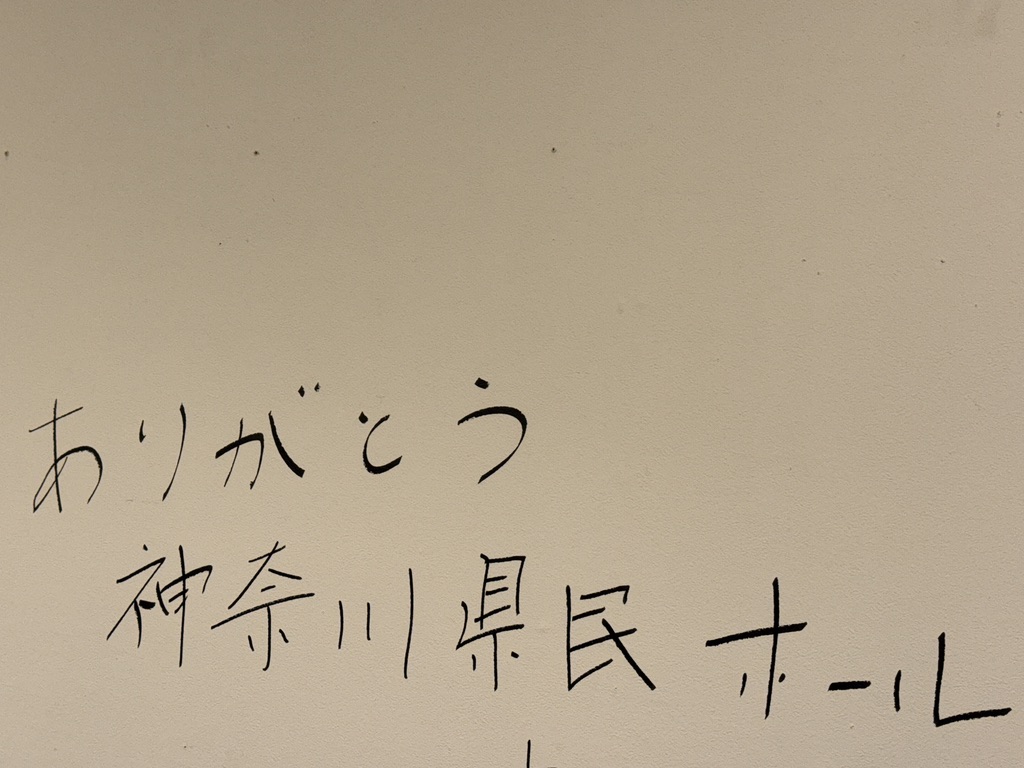 ありがとう
神奈川県民ホール